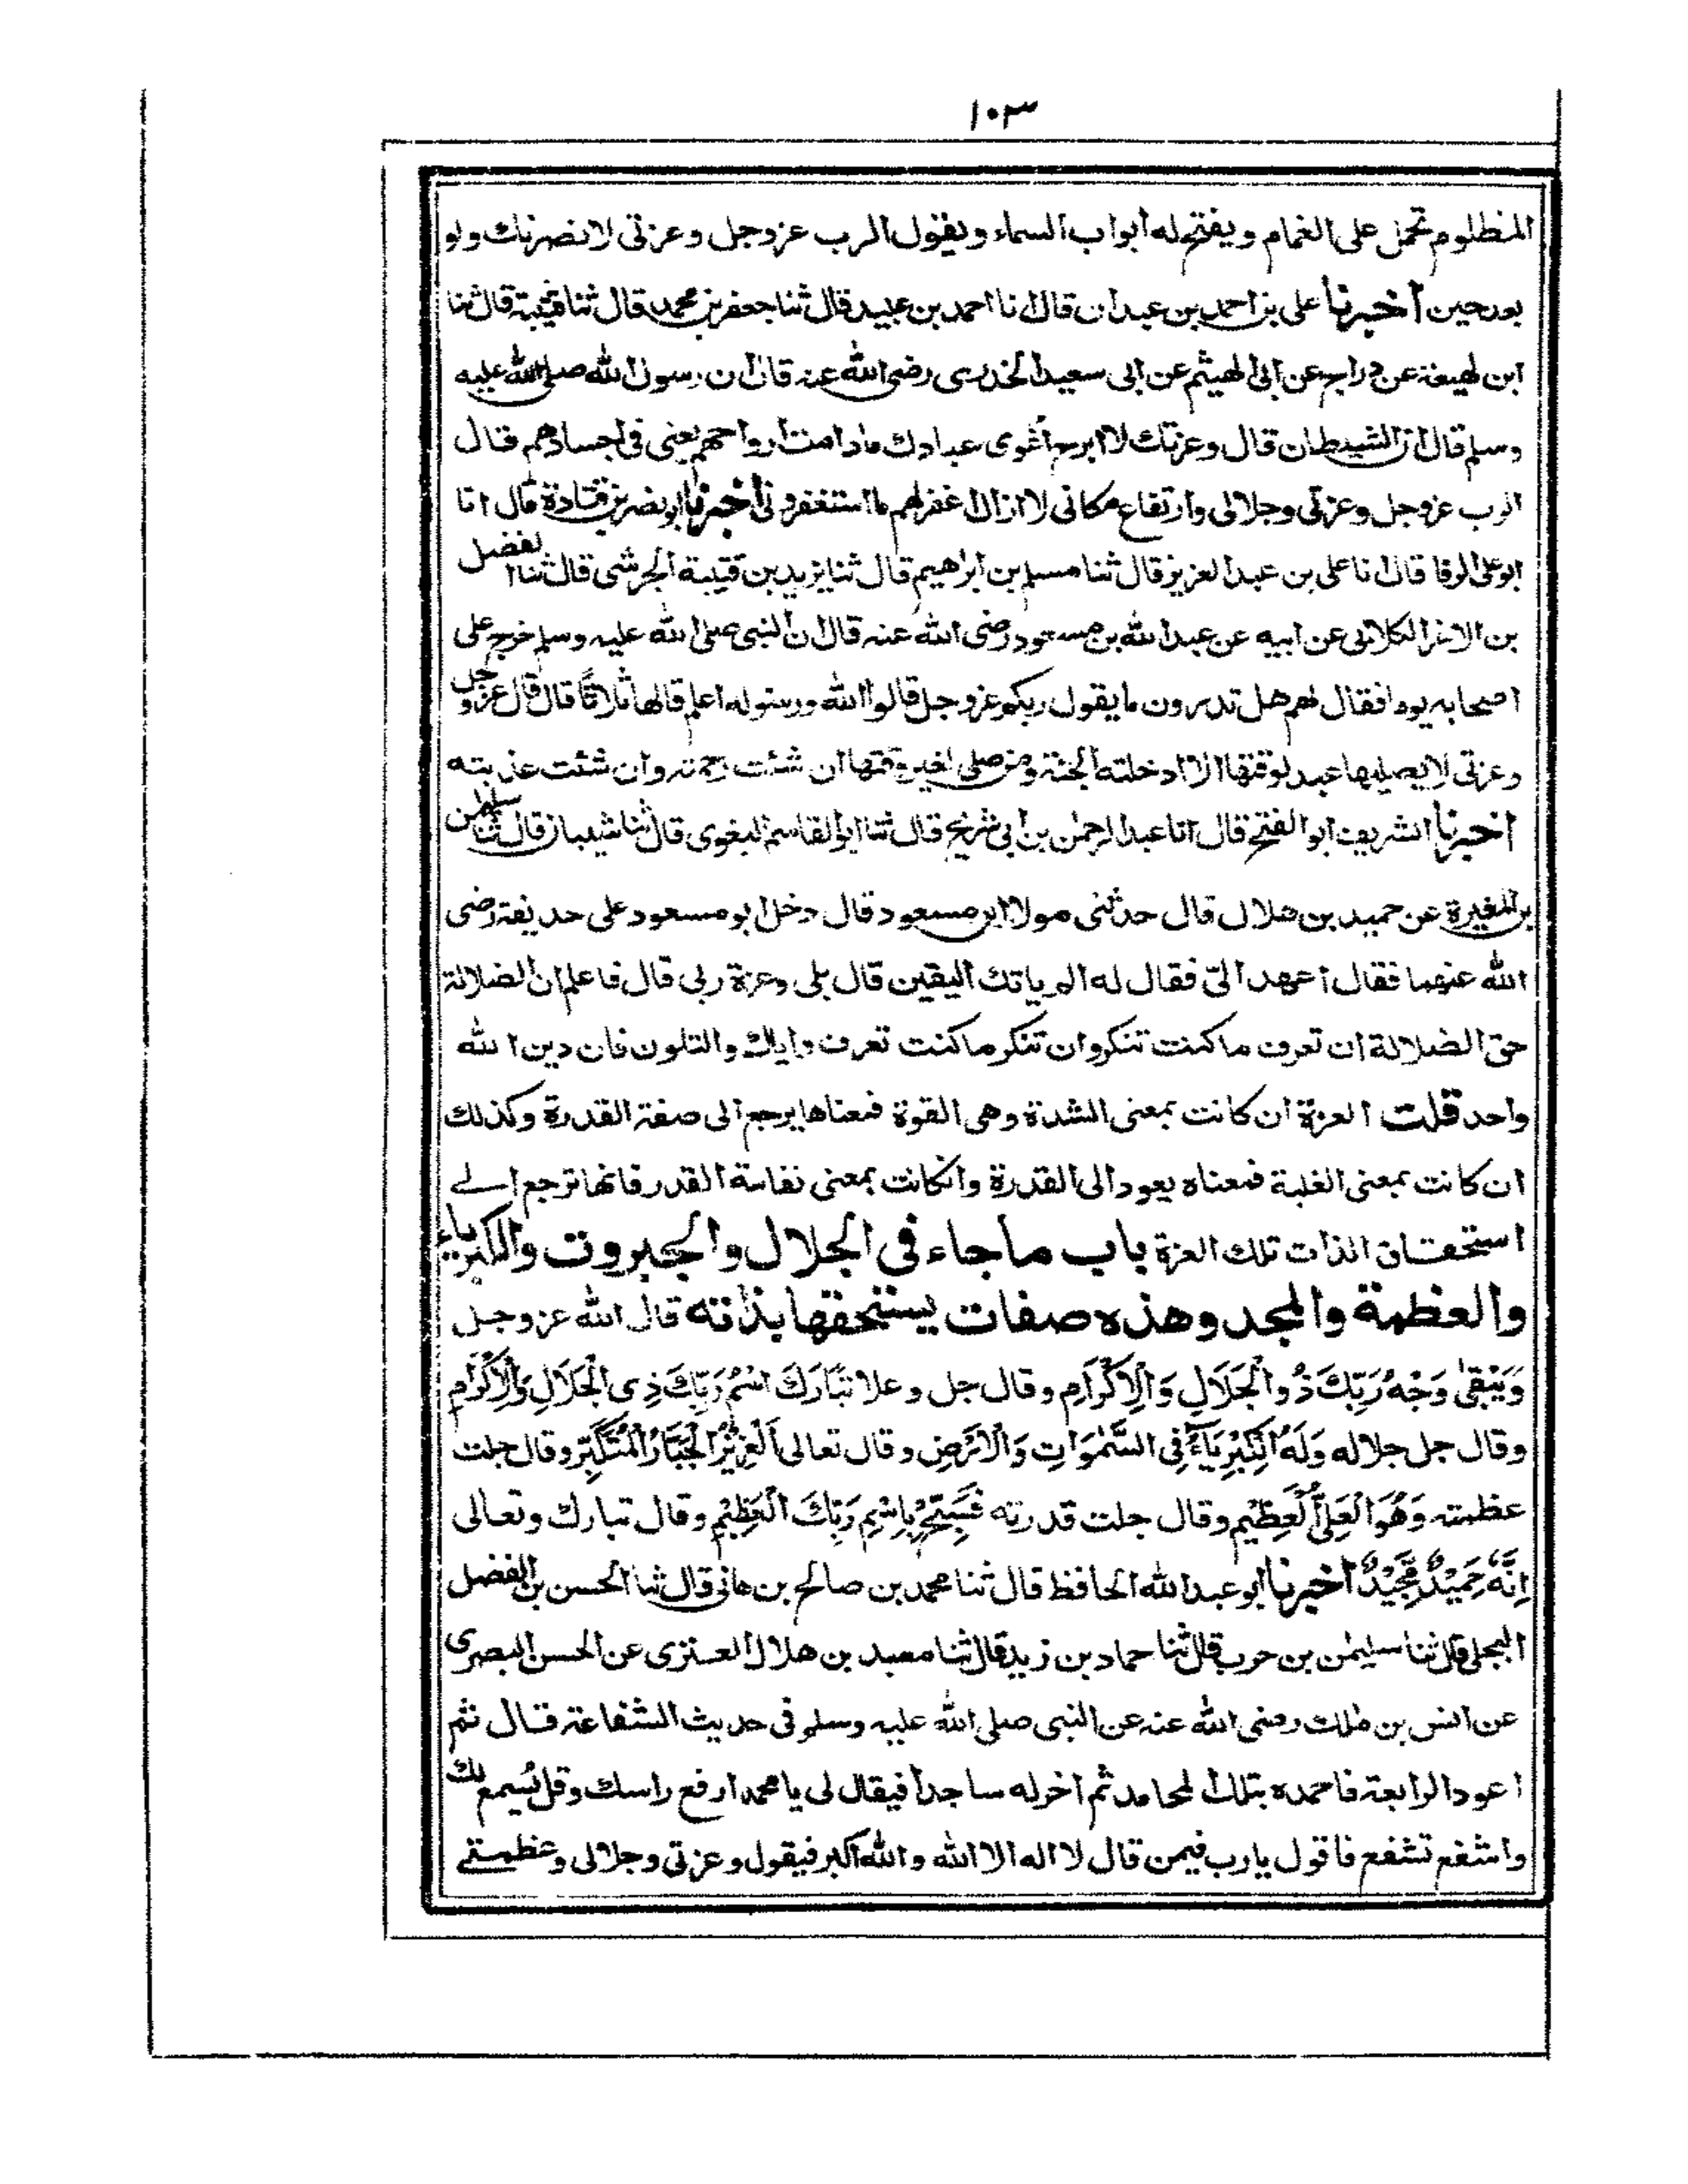 ١٠٣
المظلوم تحمل على الغمام ويفتح له ابواب السماء ويقول الرب عز وجل وعزتى لانصرنك ولو
بعد حين اخبرنا على بن احمد بن عبدان قال انا احمد بن عبيد قال ثنا جعفر بن محمد قال ثنا قتيبة قال ثنا
ابن لهيعة عن دراج عن ابى الهيثم عن ابى سعيد الخدرى رضى الله عنه قال ان رسول الله صلى الله عليه
وسلم قال ان الشيطان قال وعزتك لا ابرح اغوى عبادك ما دامت ارواحهم يعنى فى اجسادهم قال
الرب عز وجل وعزتى وجلالى وارتفاع مكانى لا ازال اغفر لهم ما استغفرونى اخبرنا ابو نصر بن قتادة قال انا
ابو على الرفا قال انا على بن عبد العزيز قال ثنا مسلم بن ابراهيم قال ثنا يزيد بن قتيبة الجرشى قال ثنا الفضل
بن الاغر الكلابى عن ابيه عن عبد الله بن مسعود رضى الله عنه قال ان النبى صلى الله عليه وسلم خرج على
اصحابه يوما فقال لهم هل تدرون ما يقول ربكم عز وجل قالوا الله ورسوله اعلم قالها ثلاثا قال قال عز وجل
وعزتى لا يصليها عبد لوقتها الا ادخلته الجنة ومن صلى لغير وقتها ان شئت رحمته وان شئت عذبته
اخبرنا الشريف ابو الفتح قال انا عبد الرحمن بن ابى شريح قال ثنا ابو القاسم البغوى قال ثنا شيبان قال ثنا سليمن
بن المغيرة عن حميد بن هلال قال حدثنى مولا ابن مسعود قال دخل ابو مسعود على حذيفة رضى
الله عنهما فقال اعهد الىّ فقال له الم ياتك اليقين قال بلى وعزة ربى قال فاعلم ان الضلالة
حق الضلالة ان تعرف ما كنت تنكر وان تنكر ما كنت تعرف واياك والتلون فان دين الله
واحد قلت العزة ان كانت بمعنى الشدة وهى القوة فمعناها يرجع الى صفة القدرة وكذلك
ان كانت بمعنى الغلبة فمعناه يعود الى القدرة وانكانت بمعنى نفاسة القدر فانها ترجع الى
استحقاق الذات تلك العزة باب ما جاء فى الجلال والجبروت والكبرياء
والعظمة والمجد وهذه صفات يستحقها بذاته قال الله عز وجل
وَيَبْقىٰ وَجْهُ رَبِّكَ ذُو الْجَلَالِ وَالْاِكْرَامِ وقال جل وعلا تَبَارَكَ اسْمُ رَبِّكَ ذِى الْجَلَالِ وَالْاِكْرَامِ
وقال جل جلاله وَلَهُ الْكِبْرِيَآءُ فِى السَّمٰوَاتِ وَالْاَرْضِ وقال تعالى اَلْعَزِيْزُ الْجَبَّارُ الْمُتَكَبِّرُ وقال جلت
عظمته وَهُوَ الْعَلِىُّ الْعَظِيْم وقال جلت قدرته فَسَبِّحْ بِاسْمِ رَبِّكَ الْعَظِيْمِ وقال تبارك وتعالى
اِنَّهٗ حَمِيْدٌ مَّجِيْدٌ اخبرنا ابو عبد الله الحافظ قال ثنا محمد بن صالح بن هانى قال ثنا الحسن بن الفضل
البجلى قال ثنا سليمن بن حرب قال ثنا حماد بن زيد قال ثنا معبد بن هلال العنزى عن الحسن البصرى
عن انس بن ملك رضى الله عنه عن النبى صلى الله عليه وسلم فى حديث الشفاعة قال ثم
اعود الرابعة فاحمده بتلك المحامد ثم اخر له ساجدا فيقال لى يا محمد ارفع راسك وقل يُسمع لك
واشفع تشفع فاقول يا رب فيمن قال لا اله الا الله والله اكبر فيقول وعزتى وجلالى وعظمتى